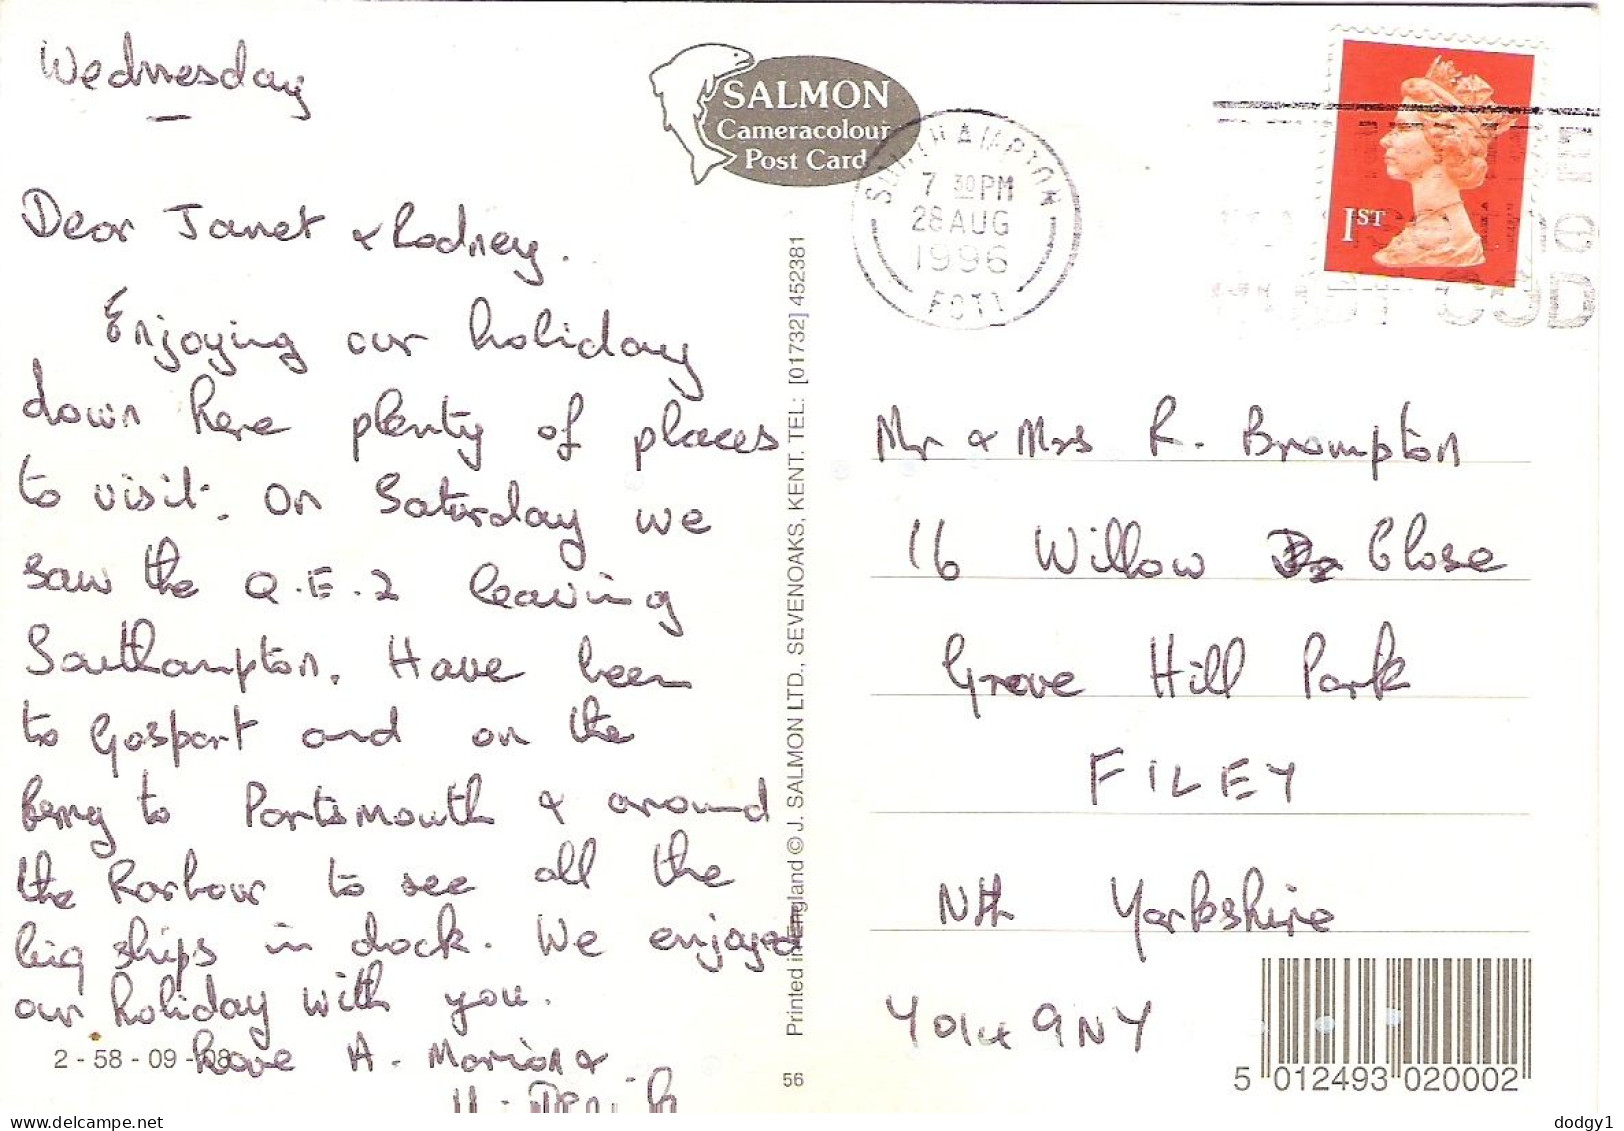 Wednesday
Dear Janet & Rodney.
Enjoying our holiday
down here plenty of places
to visit. On Saturday we
saw the Q.E.2 leaving
Southampton. Have been
to Gosport and on the
ferry to Portsmouth & around
the Harbour to see all the
big ships in dock. We enjoyed
our holiday with you.
Love A. Marion &
2 - 58 - 09 - 08
SALMON
Cameracolour
Post Card
Printed in England © J. SALMON LTD., SEVENOAKS, KENT. TEL: [01732] 452381
56
SOUTHAMPTON
7 30PM
28 AUG
1996
1ST
Mr & Mrs R. Brompton
16 Willow Close
Grove Hill Park
FILEY
Nth Yorkshire
YO14 9NY
5 012493 020002
dodgy1